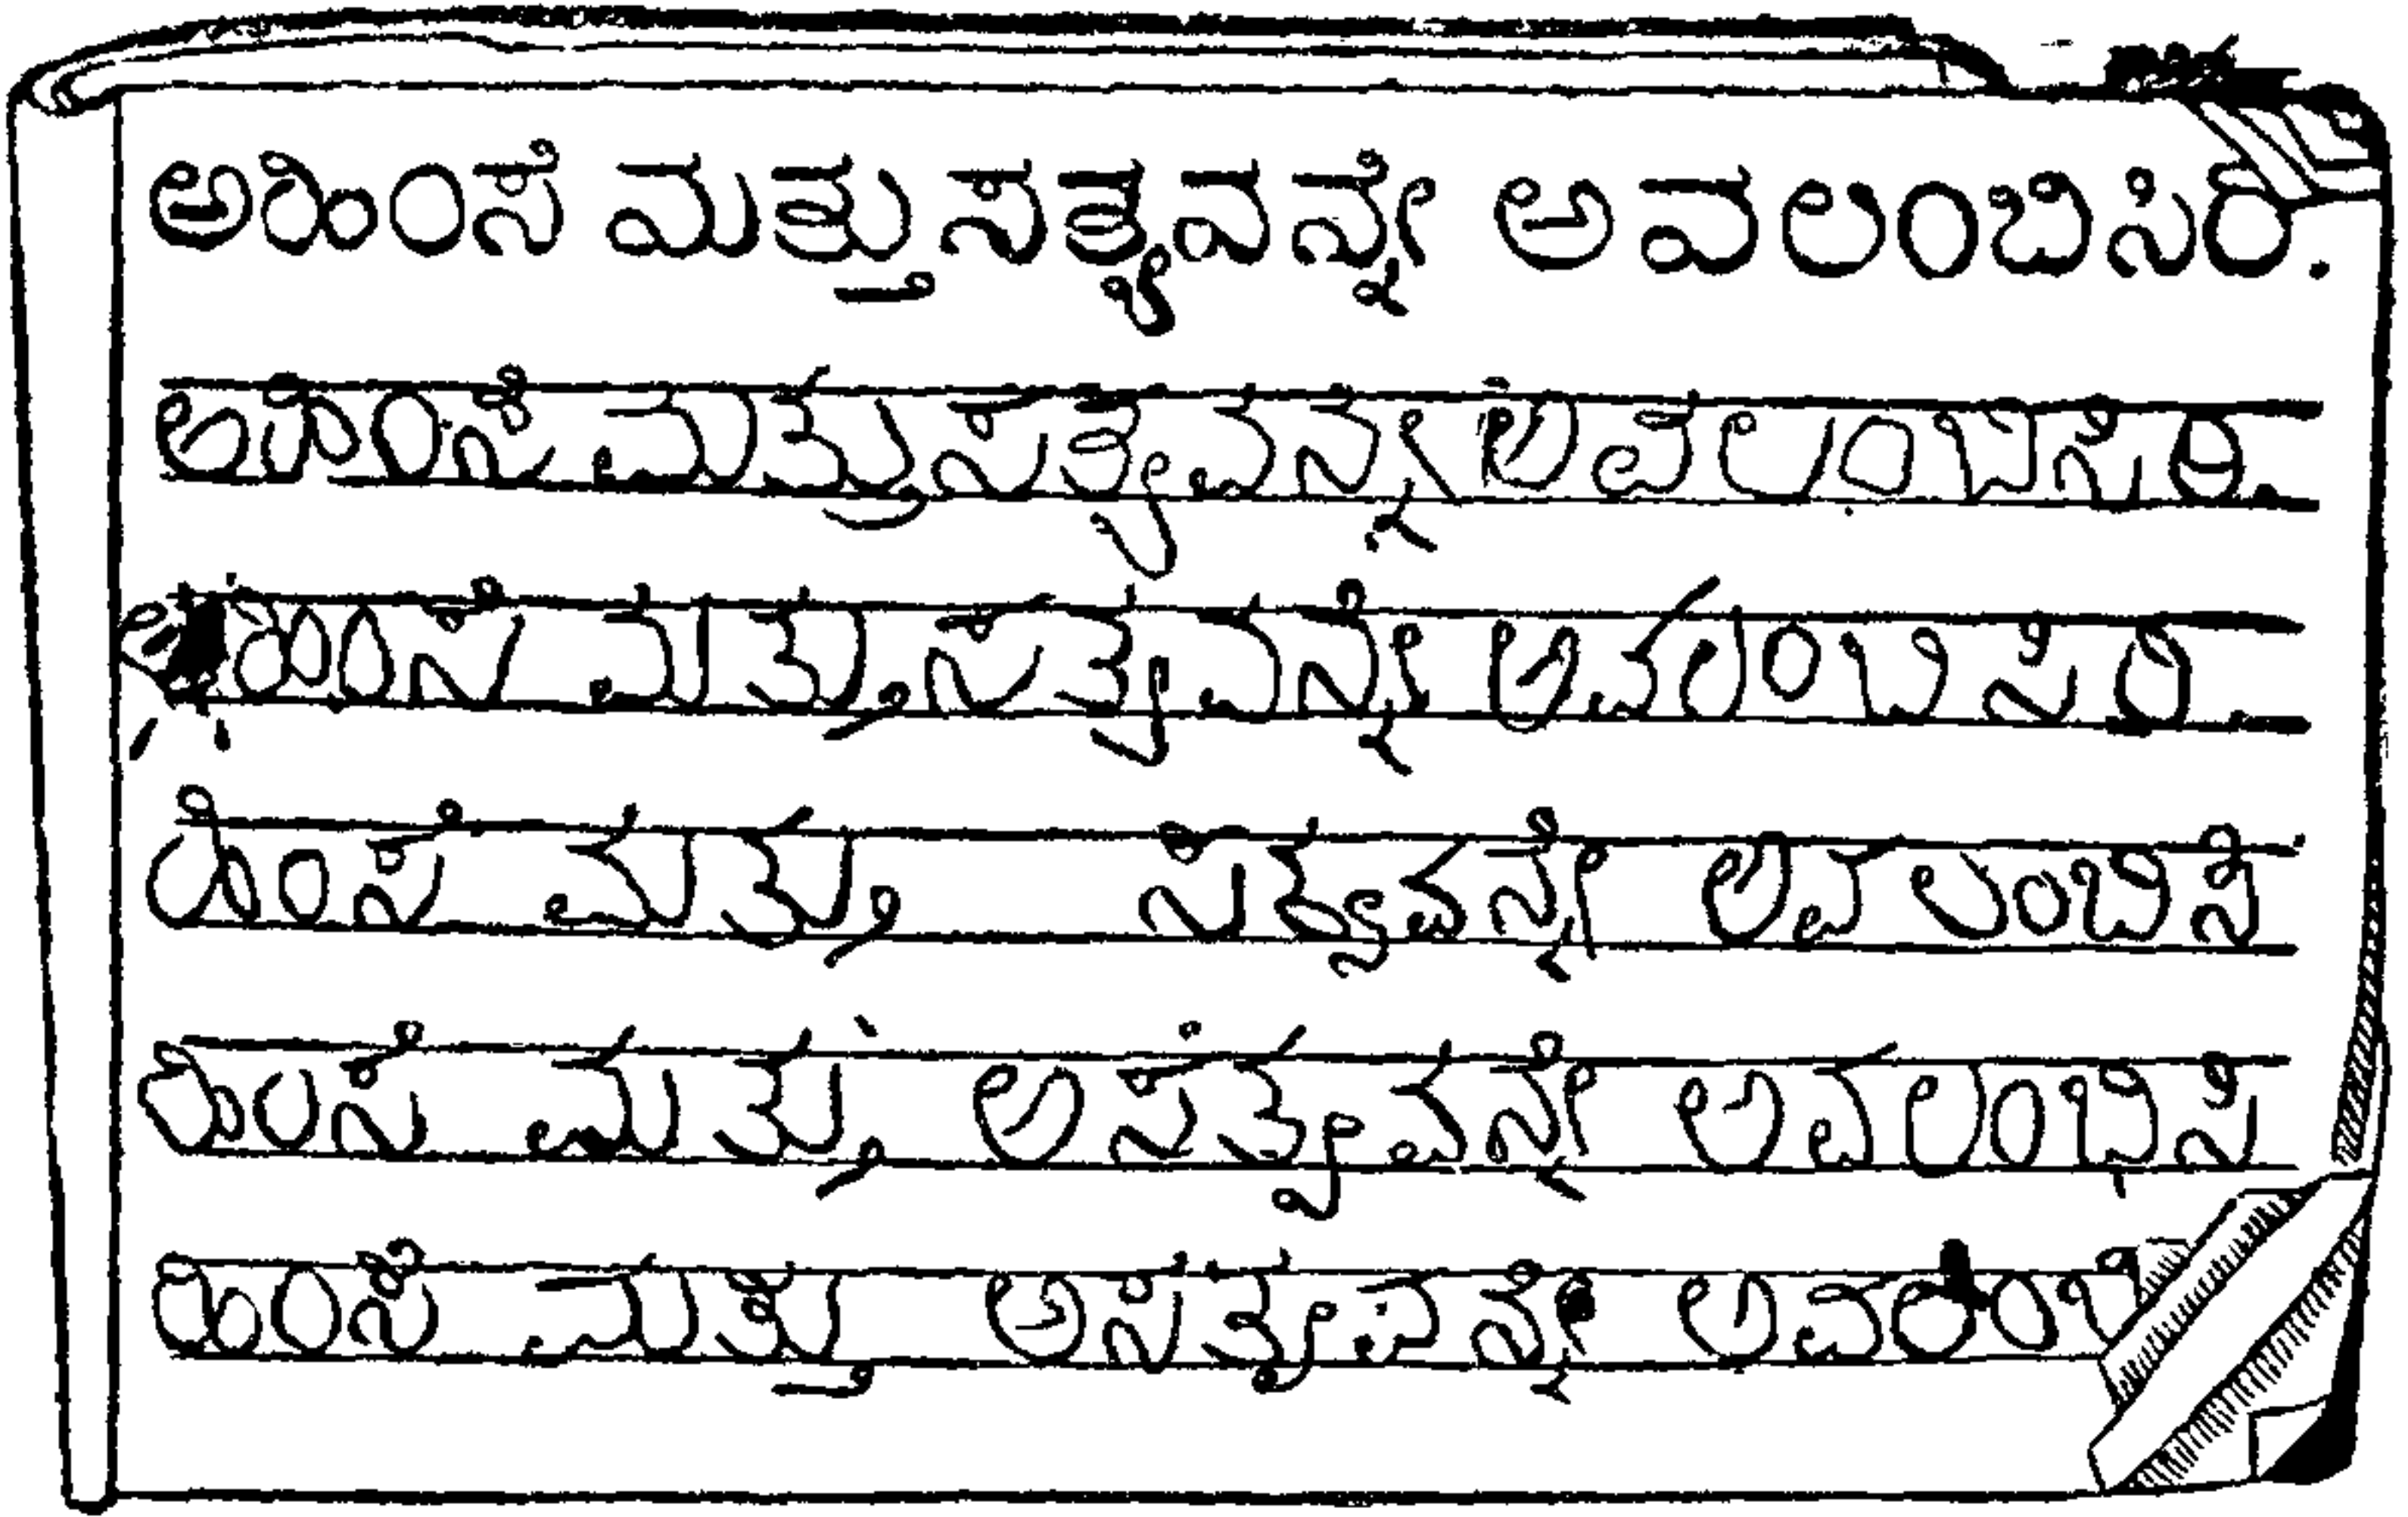 ಅಹಿಂಸೆ ಮತ್ತು ಸತ್ಯವನ್ನೇ ಅವಲಂಬಿಸಿರಿ.
ಅಹಿಂಸೆ ಮತ್ತು ಸತ್ಯವನ್ನೇ ಅವಲಂಬಿಸಿರಿ.
ಅಹಿಂಸೆ ಮತ್ತು ಸತ್ಯವನ್ನೇ ಅವಲಂಬಿಸಿರಿ.
ಹಿಂಸೆ ಮತ್ತು ಸತ್ಯವನ್ನೇ ಅವಲಂಬಿಸಿ
ಹಿಂಸೆ ಮತ್ತು ಅಸತ್ಯವನ್ನೇ ಅವಲಂಬಿಸಿ
ಹಿಂಸೆ ಮತ್ತು ಅಸತ್ಯವನ್ನೇ ಅವಲಂಬಿ